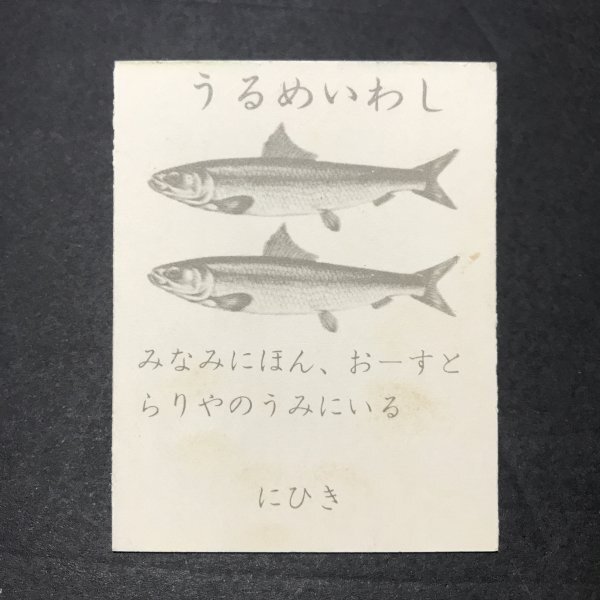 うるめいわし
みなみにほん、おーすと
らりやのうみにいる
にひき